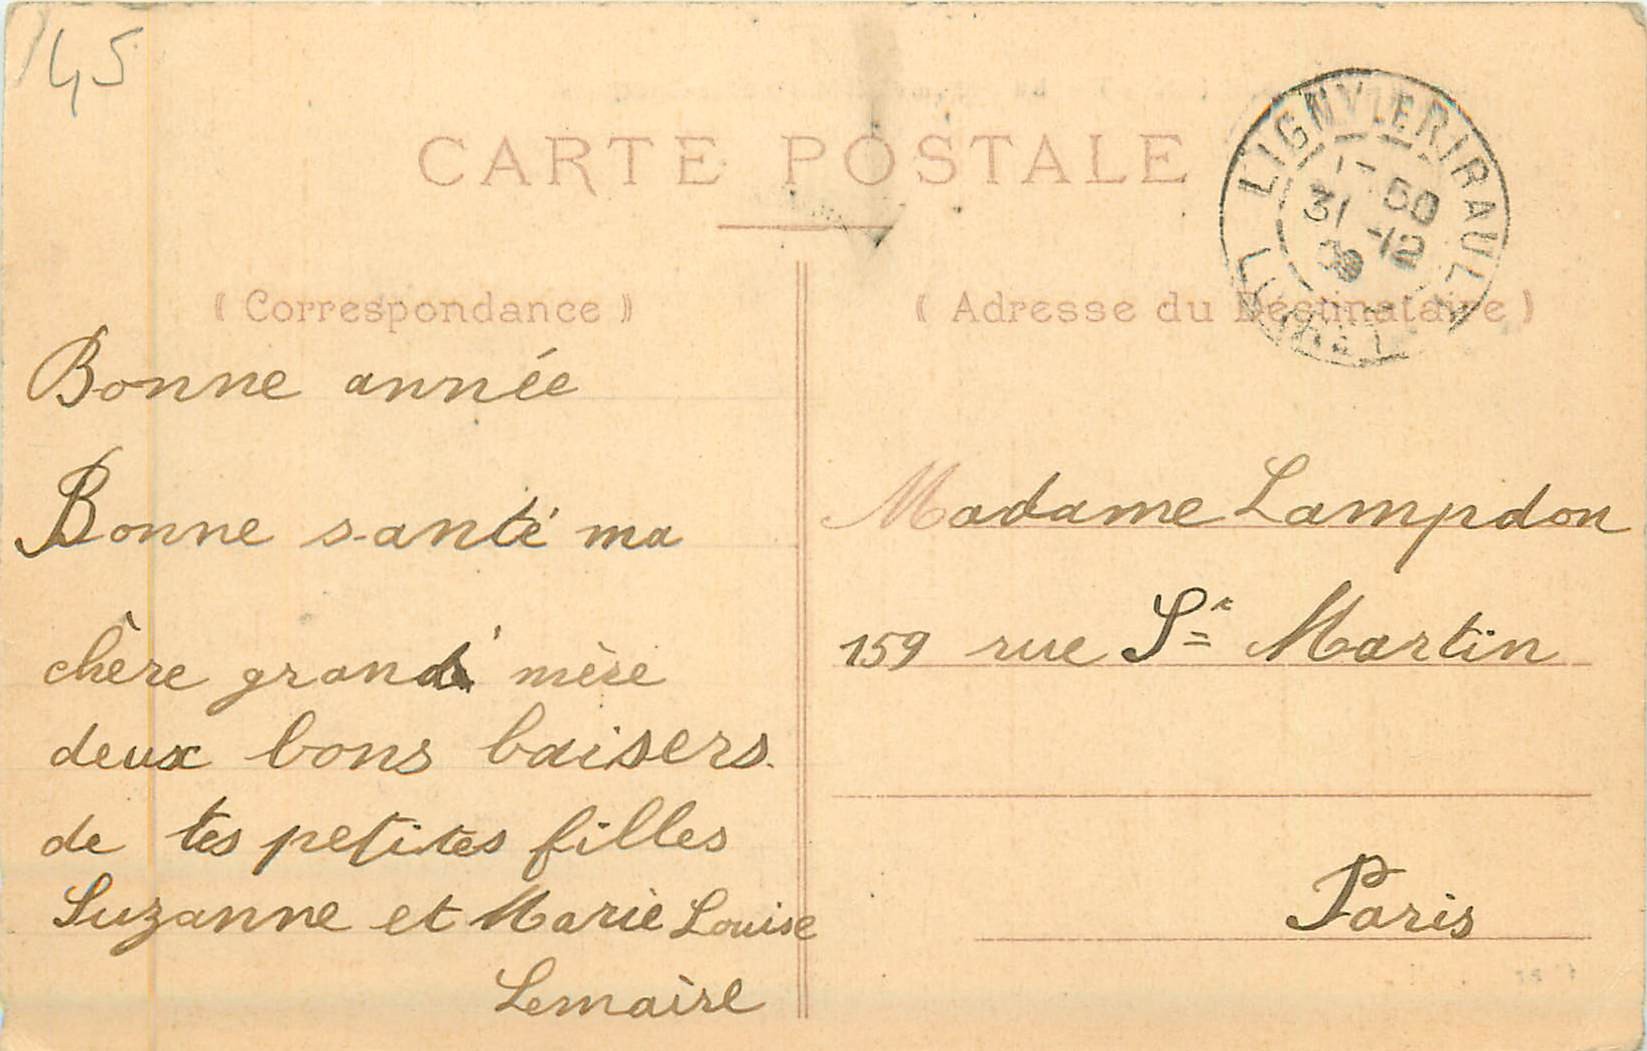 45
CARTE POSTALE
LIGNY LE RIBAULT
LOIRET
31 -12
( Correspondance )
( Adresse du Destinataire )
Bonne année
Bonne santé ma
chère grand' mère
deux bons baisers.
de tes petites filles
Suzanne et Marie Louise
Lemaire
Madame Lampdon
159 rue St Martin
Paris